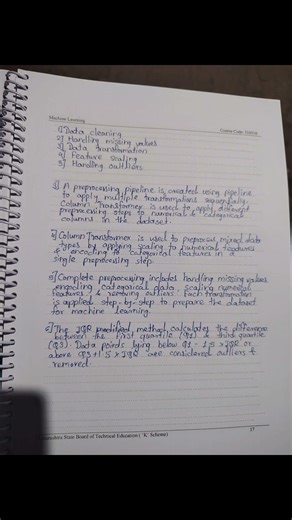 Machine Learning
1] Data cleaning
2] Handling missing values
3] Data transformation
4] Feature scaling
5] Handling outliers
3] A preprocessing pipeline is created using pipeline
to apply multiple transformations sequentially.
Column Transformer is used to apply different
preprocessing steps to numerical & categorical
columns in the dataset.
4] Column Transformer is used to preprocess mixed data
types by applying scaling to numerical features
& encoding to categorical features in a
single preprocessing step.
5] Complete preprocessing includes handling missing values
encoding categorical data, scaling numerical
features & removing outliers. Each transformation
is applied step-by-step to prepare the dataset
for machine learning.
6] The IQR method calculates the difference
between the first quartile (Q1) & third quartile
(Q3). Data points lying below Q1 - 1.5 × IQR or
above Q3 + 1.5 × IQR are considered outliers &
removed.
State Board of Technical Education ( 'K' Scheme)
17